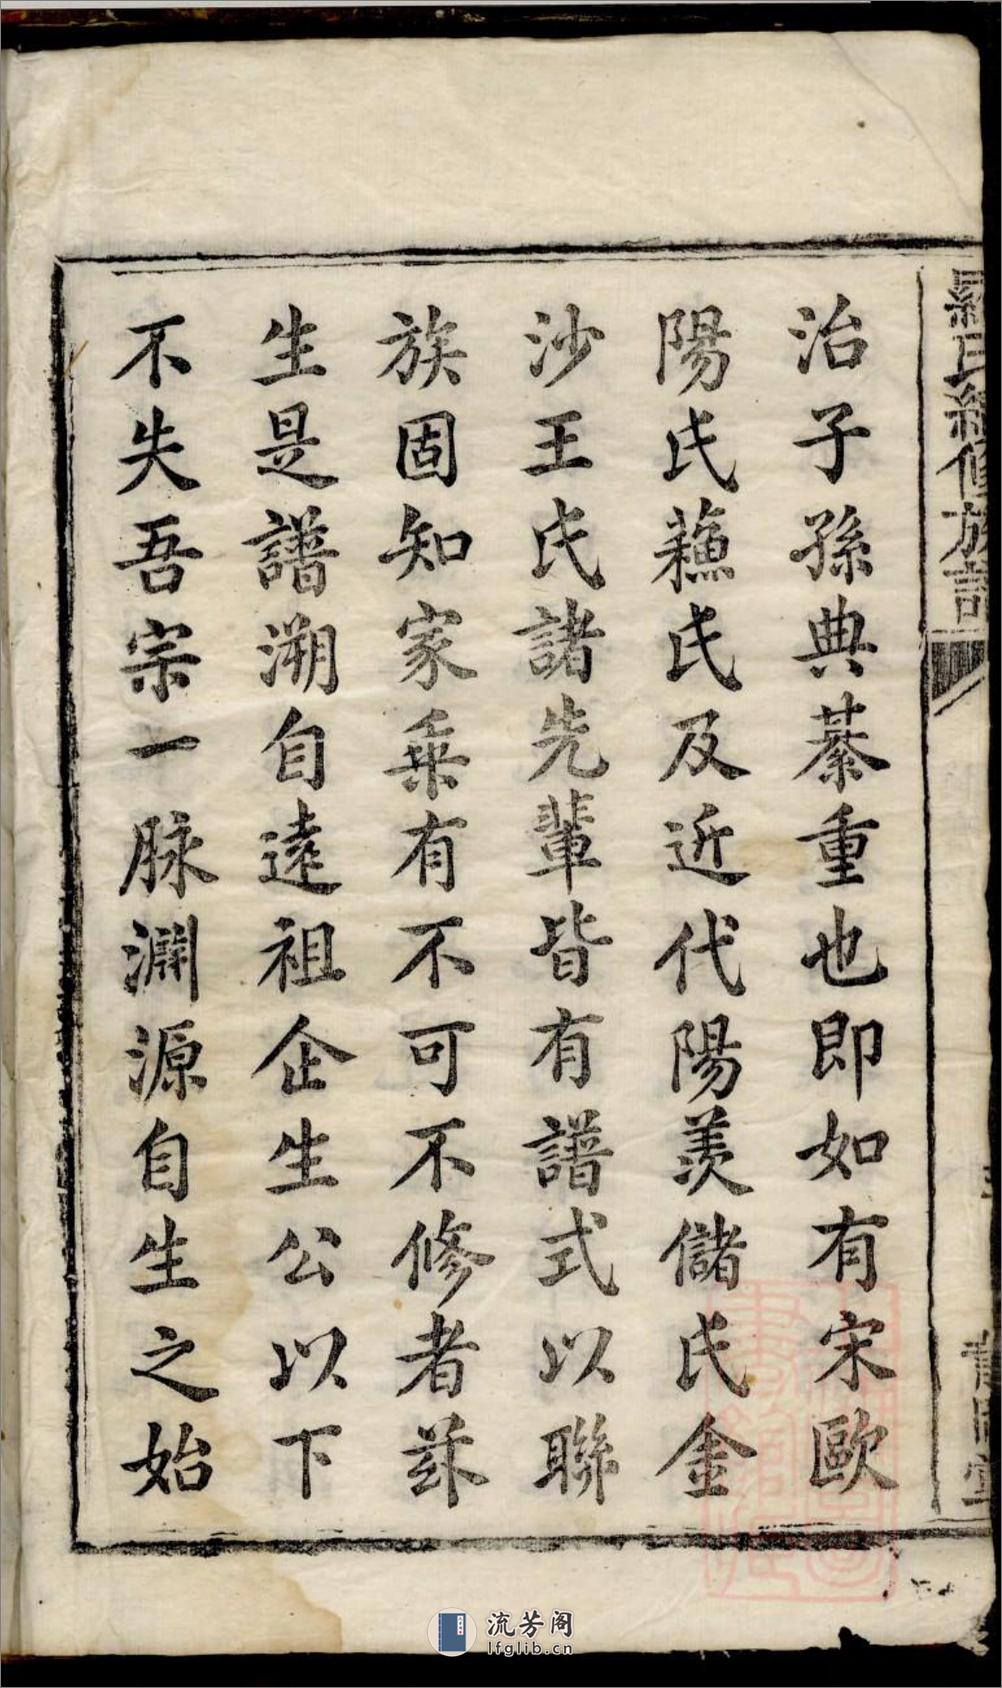 羅氏續修族譜
治子孫典綦重也即如有宋歐
陽氏蘓氏及近代陽羨儲氏金
沙王氏諸先輩皆有譜式以聯
族固知家乗有不可不修者茲
生是譜溯自遠祖企生公以下
不失吾宗一脉淵源自生之始
流芳阁
lfglib.cn